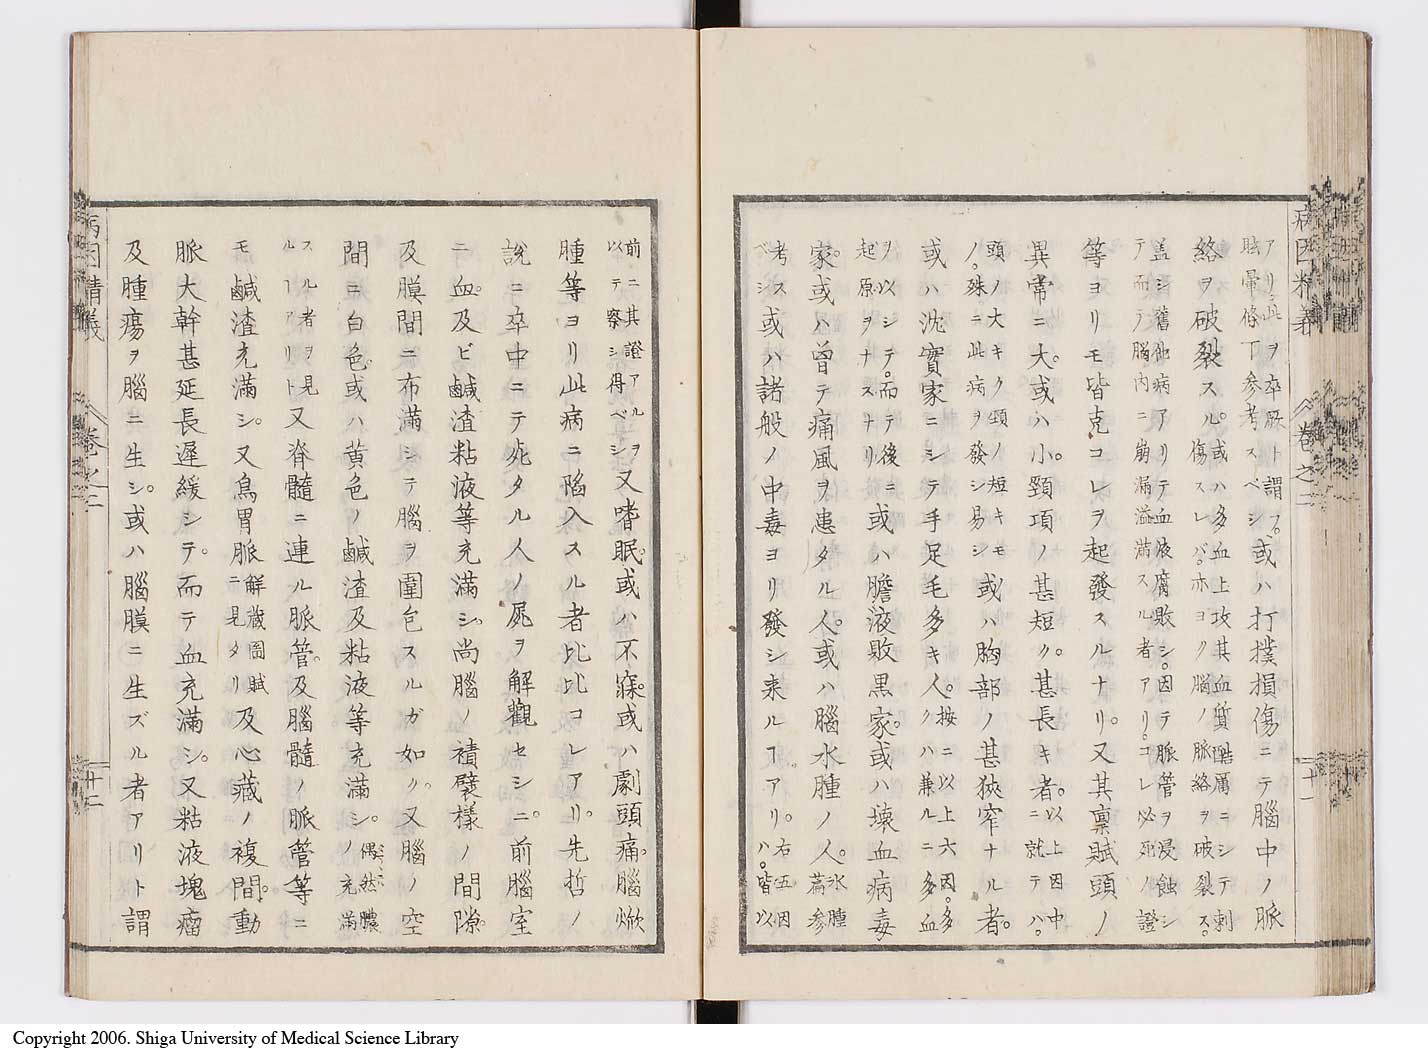 病因精義
卷之二
二十一
アリ此ヲ卒厥ト謂フ。
眩暈條下參考スベシ
或ハ打撲損傷ニテ腦中ノ脈
絡ヲ破裂スル。
或ハ多血上攻其血質酷厲ニシテ刺
傷スレバ。亦ヨク腦ノ脈絡ヲ破裂ス。
蓋シ舊蝕病アリテ血液腐敗シ。因テ脈管ヲ浸蝕シ
テ而テ腦内ニ崩漏溢滿スル者アリ。コレ必死ノ證
等ヨリモ皆克コレヲ起發スルナリ。又其稟賦頭ノ
異常ニ大。或ハ小。頸項ノ甚短ク。甚長キ者。
以上因中
ニ就テハ。
頭ノ大キク頸ノ短キモ
ノ。殊ニ此病ヲ發シ易シ
或ハ胸部ノ甚狹窄ナル者。
或ハ沈實家ニシテ手足毛多キ人。
按ニ以上六因。多
クハ兼ルニ多血
ヲ以シテ。而テ後ニ
起原ヲナスナリ
或ハ膽液敗黒家。或ハ壊血病毒
家。或ハ曾テ痛風ヲ患タル人。或ハ腦水腫ノ人。
水腫
篇參
考ス
ベシ
或ハ諸般ノ中毒ヨリ發シ来ルヿアリ。
右五因
ハ。皆以
前ニ其證アルヲ
以テ察シ得ベシ
又嗜眠。或ハ不寐。或ハ劇頭痛。腦焮
腫等ヨリ此病ニ陷入スル者比比コレアリ。先哲ノ
説ニ卒中ニテ死タル人ノ屍ヲ解觀セシニ。前腦室
ニ血。及ビ鹹渣粘液等充滿シ。尚腦ノ襀襞樣ノ間隙。
及膜間ニ布滿シテ腦ヲ圍包スルガ如ク。又腦ノ空
間ニ白色。或ハ黄色ノ鹹渣及粘液等充滿シ。
偶然膿
ノ充滿
スル者ヲ見
ルヿアリト
又脊髓ニ連ル脈管。及腦髓ノ脈管等ニ
モ鹹渣充滿シ。又鳥胃脈
解藏圖賦
ニ見タリ
及心藏ノ複間。動
脈大幹甚延長遲緩シテ。而テ血充滿シ。又粘液塊瘤
及腫瘍ヲ腦ニ生シ。或ハ腦膜ニ生ズル者アリト謂
病因精義
卷之二
二十二
Copyright 2006. Shiga University of Medical Science Library